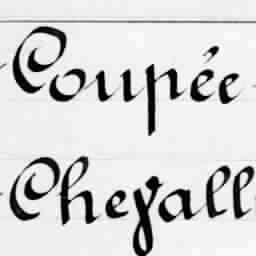 Coupée
Chevall